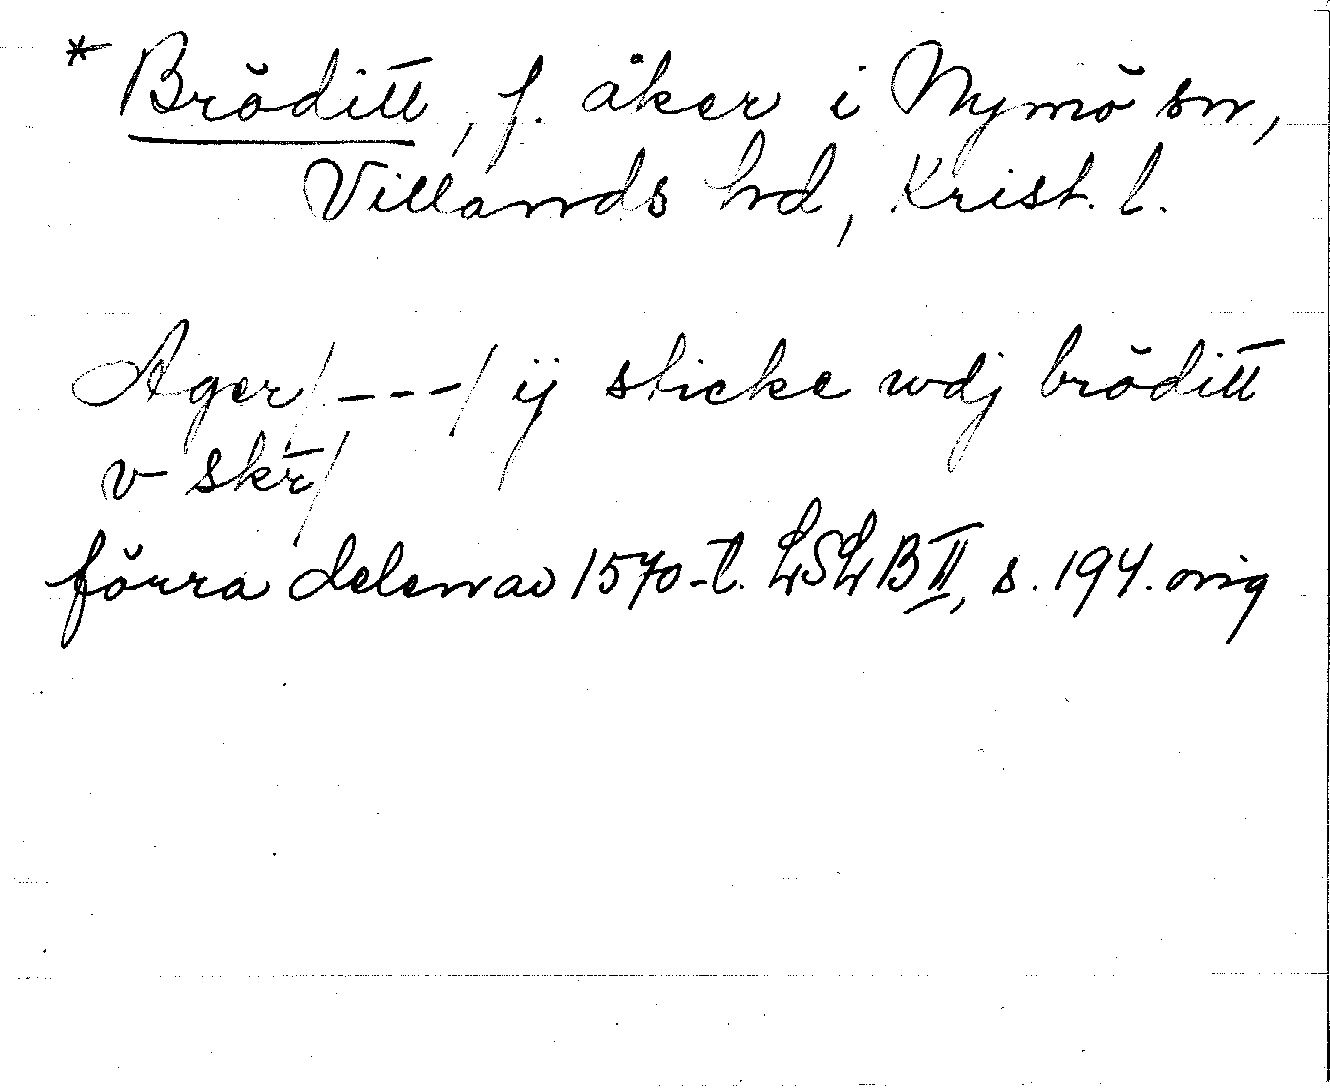 * Bröditt, f. åker i Nymö sn,
Villands hd, Krist. l.
Ager/---/ ij sticke wdj bröditt
v skr̄/
förra delen av 1570-t. LSLB II, s. 194. orig